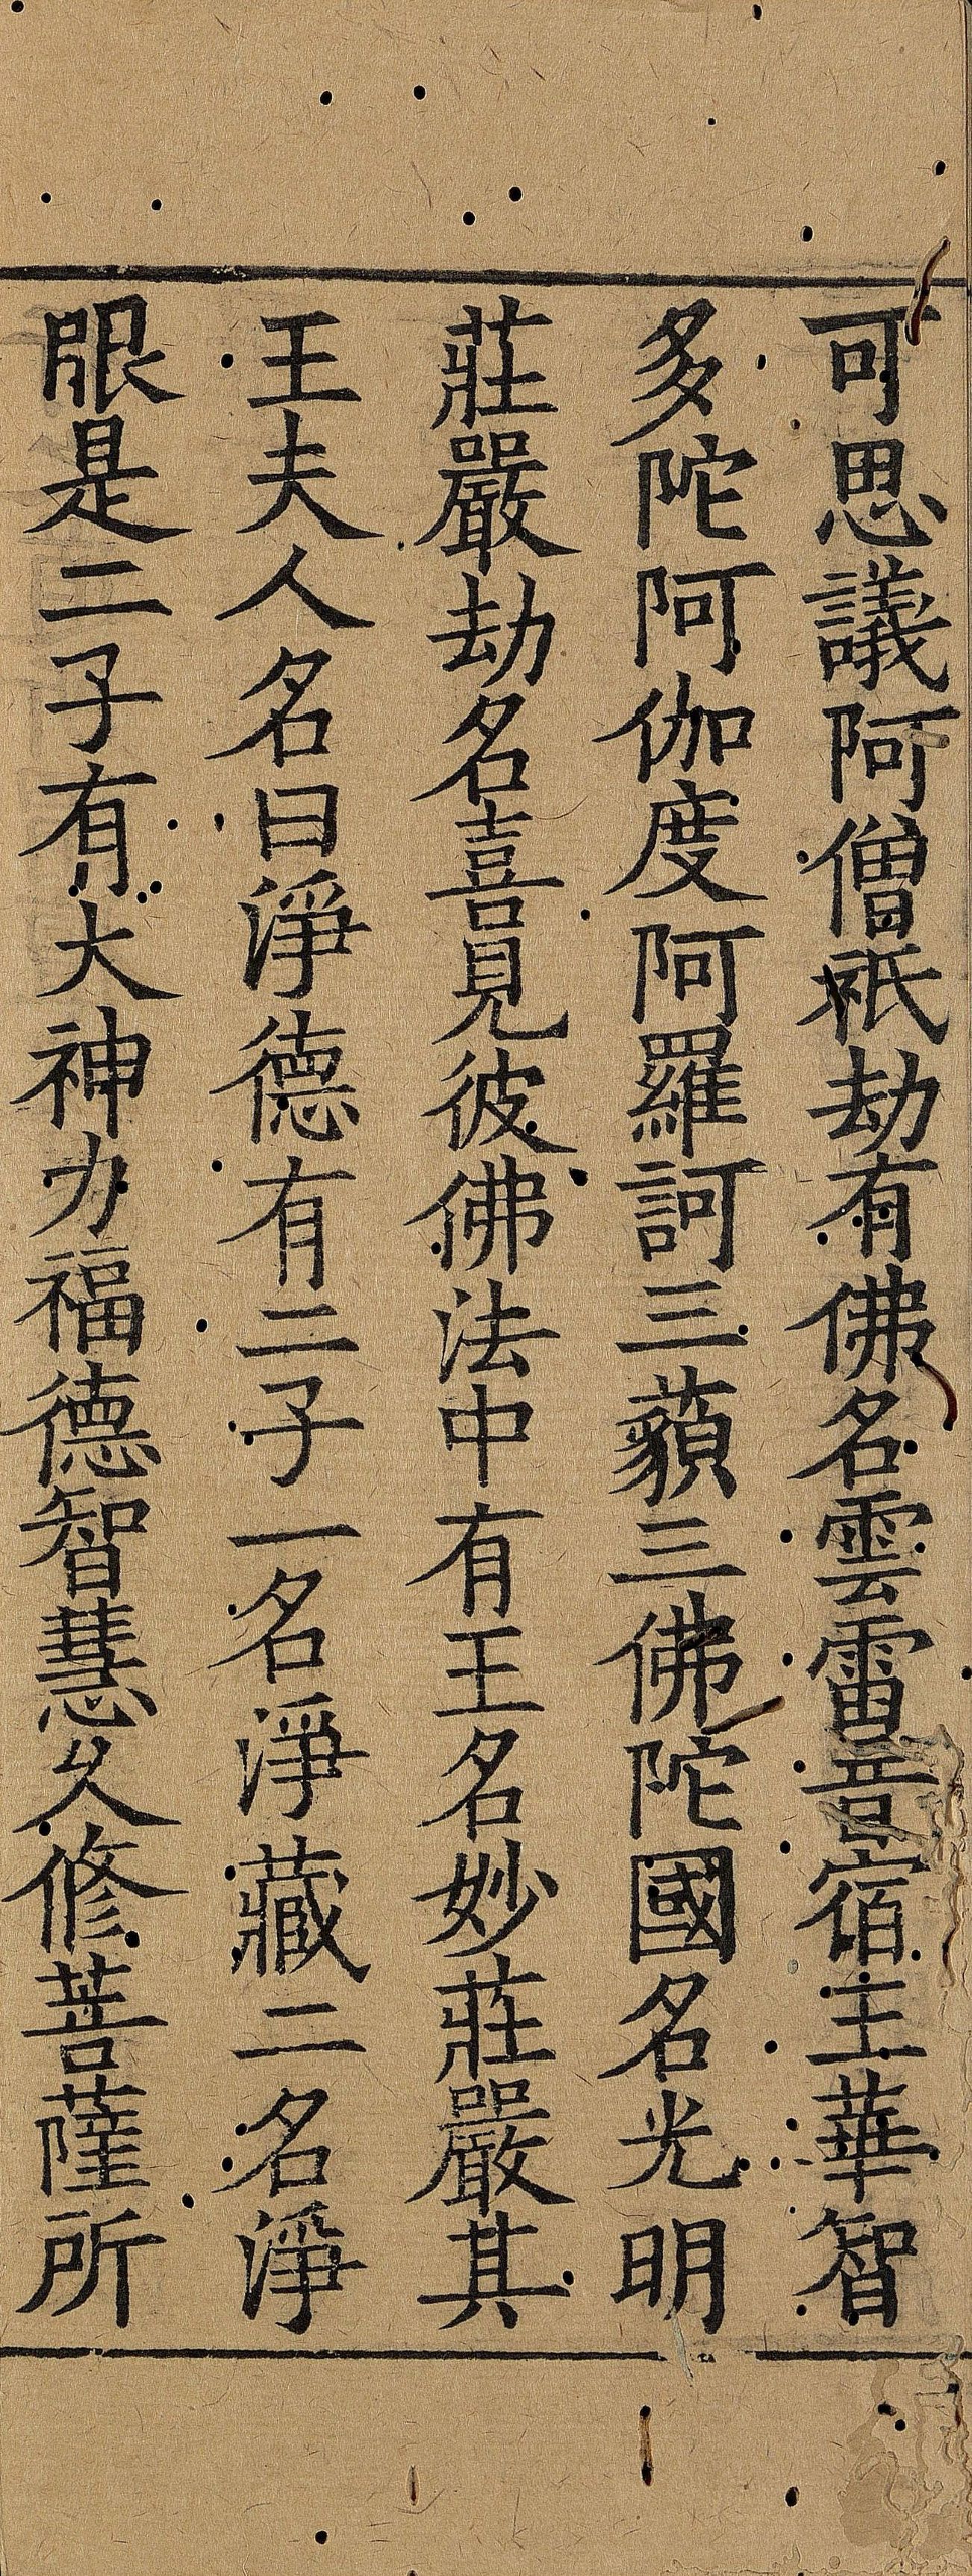 可思議阿僧祇劫有佛名雲雷音宿王華智
多陀阿伽度阿羅訶三藐三佛陀國名光明
莊嚴劫名喜見彼佛法中有王名妙莊嚴其
王夫人名曰淨德有二子一名淨藏二名淨
眼是二子有大神力福德智慧久修菩薩所